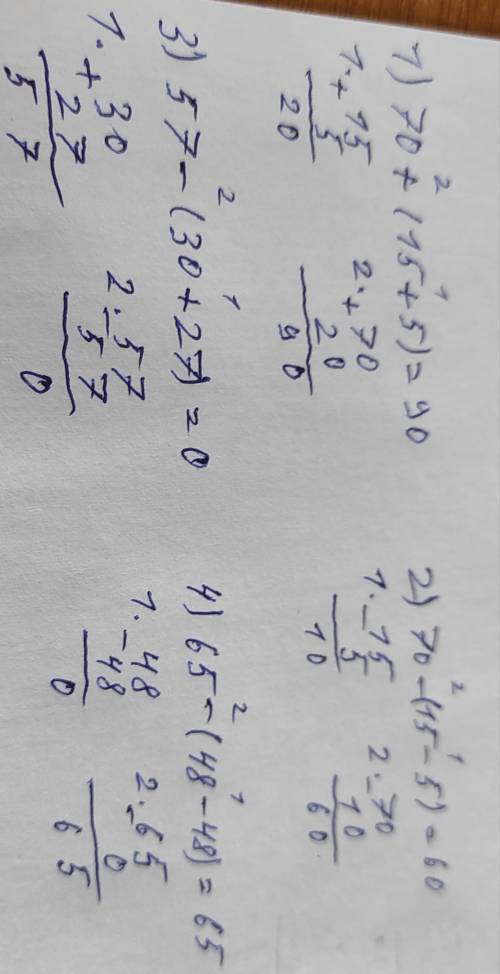 1) 70 + (15 + 5) = 90
2 1
1. + 15
5
20
2. + 70
20
90
2) 70 - (15 - 5) = 60
2 1
1. - 15
5
10
2. - 70
10
60
3) 57 - (30 + 27) = 0
2 1
1. + 30
27
57
2. - 57
57
0
4) 65 - (48 - 48) = 65
2 1
1. - 48
48
0
2. - 65
0
65